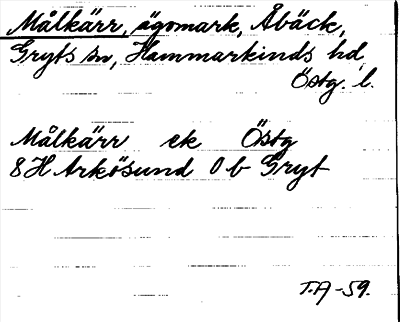 Målkärr, ägomark, Åbäck,
Gryts sn, Hammarkinds hd,
Östg. l.
Målkärr ek Östg
8H Arkösund 0 b Gryt
T.A-59.